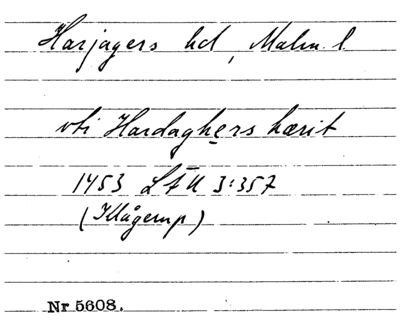 Harjagers hd, Malm. l.
vti Hardaghers hærit
1453 LfU 3:357
(Illågerup)
Nr 5608.